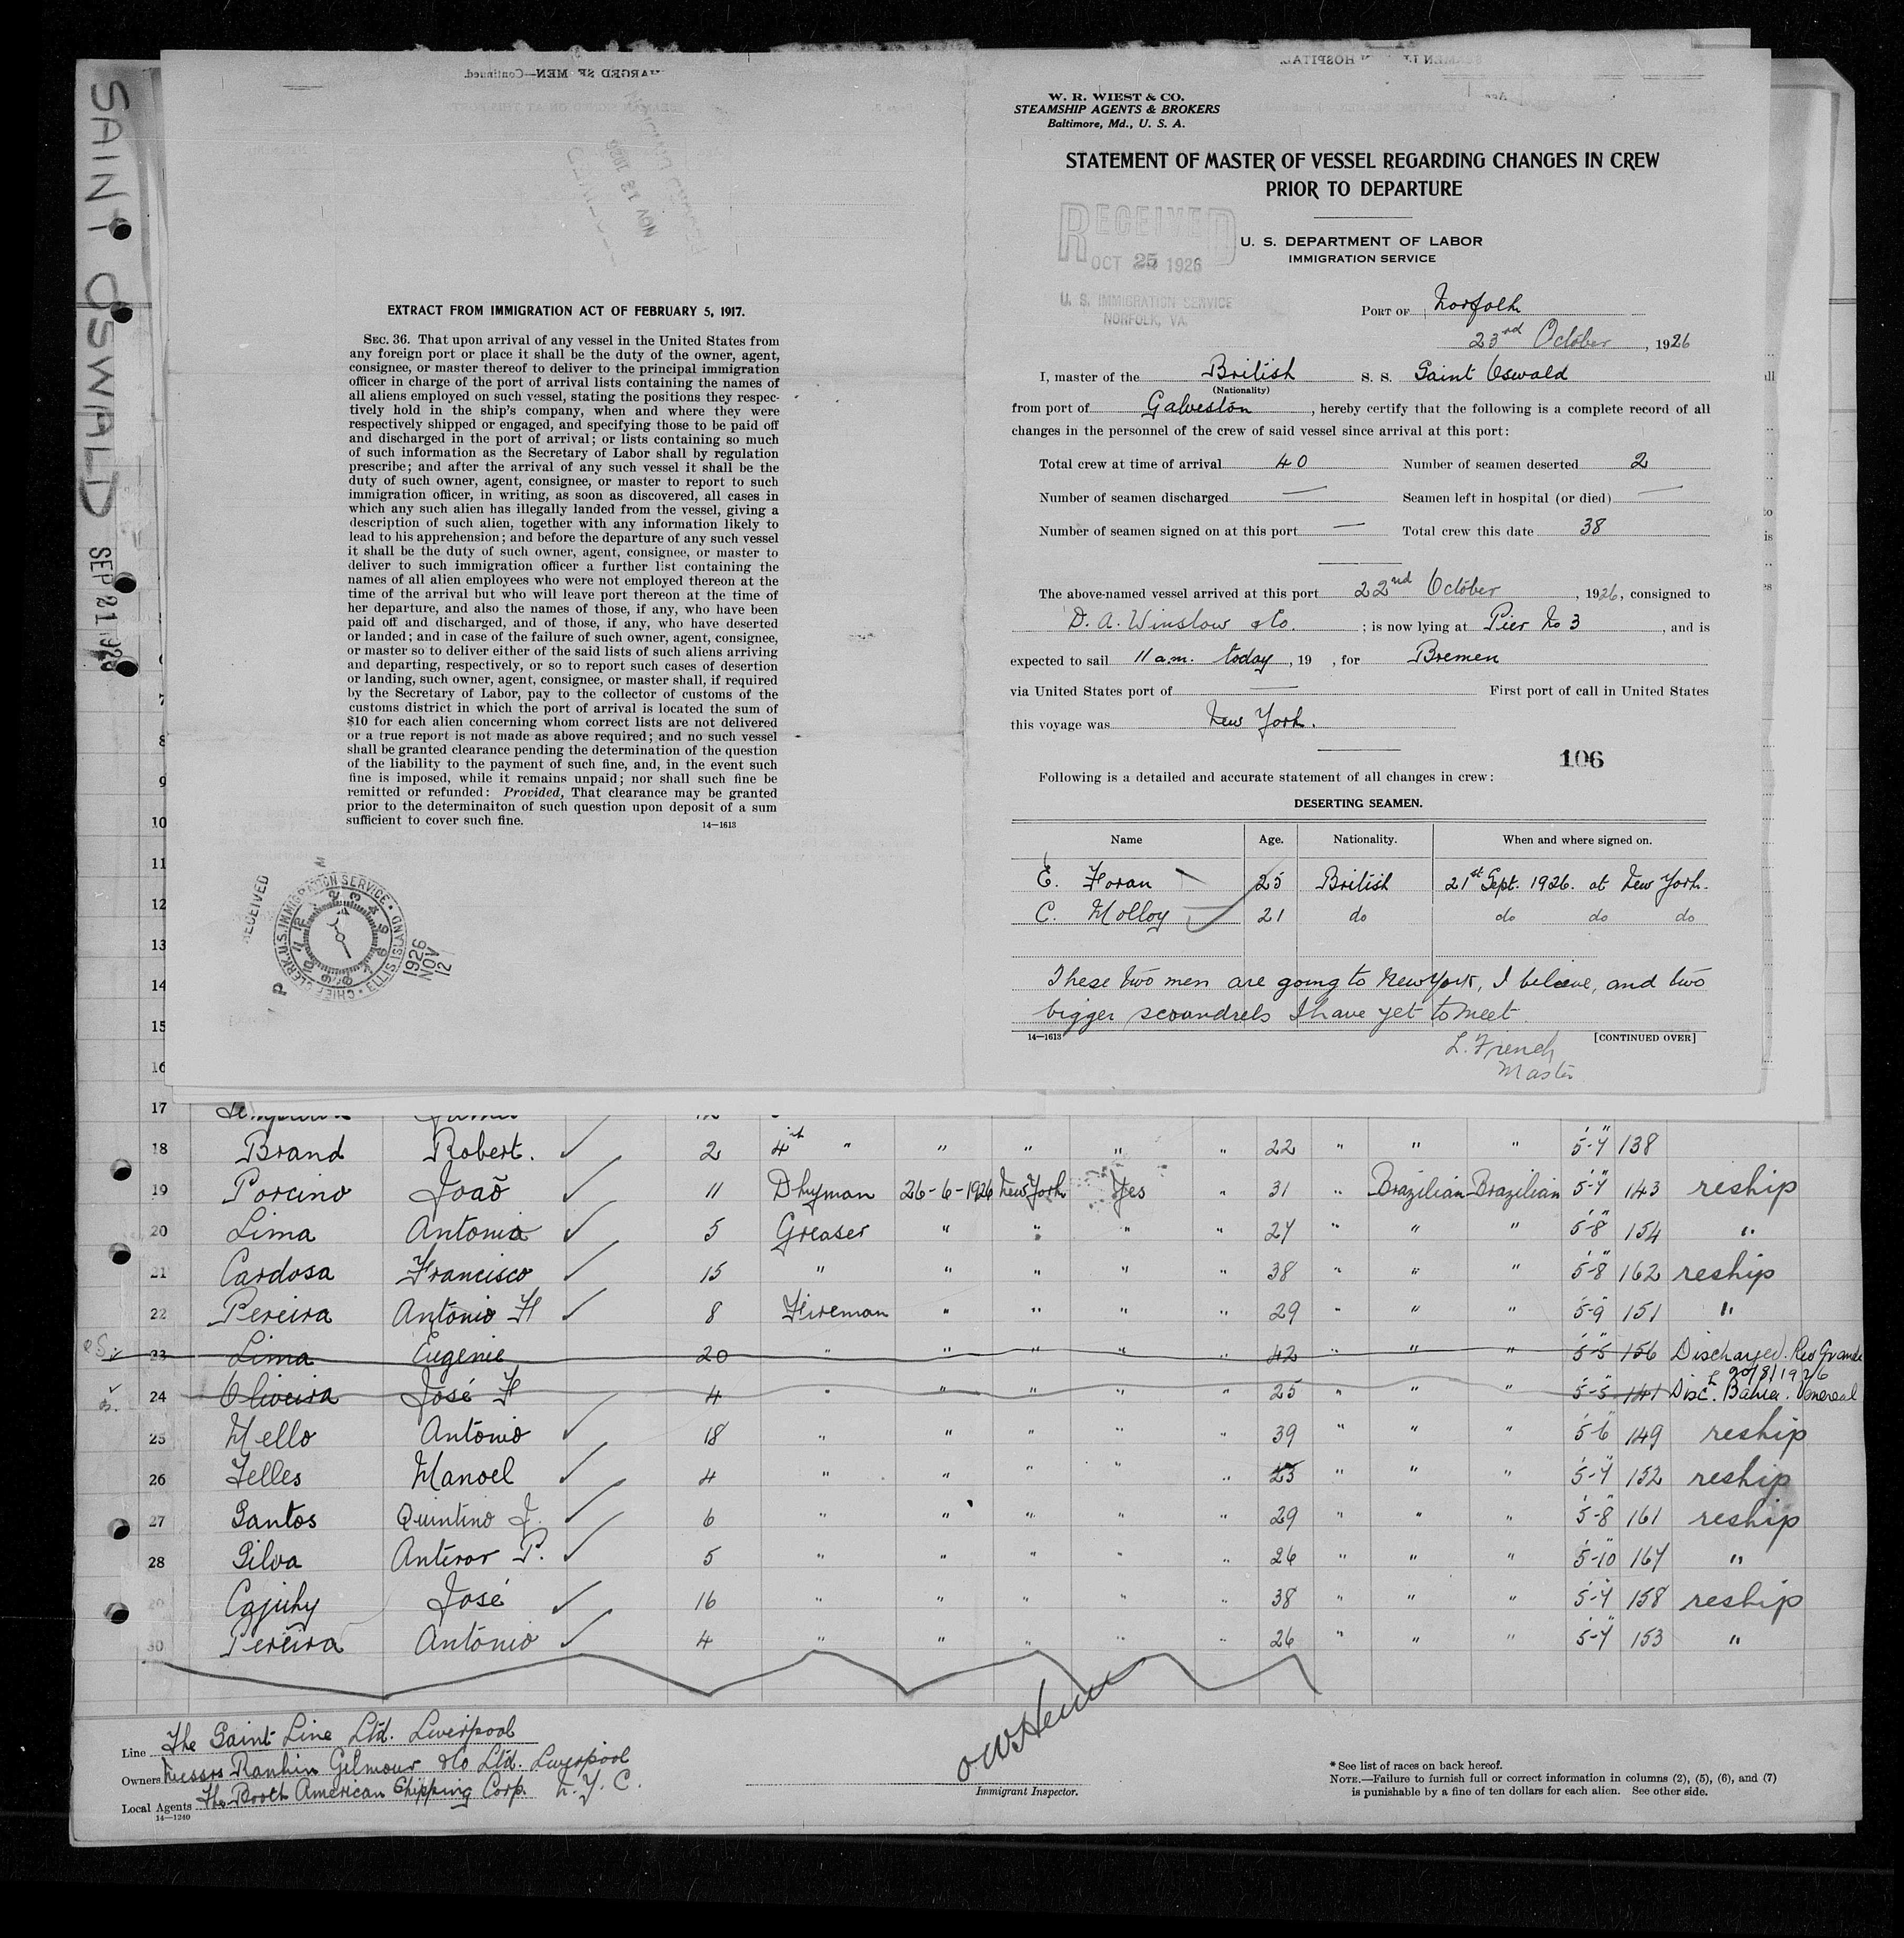 SAINT OSWALD SEP 21 1926
W. R. WIEST & CO.
STEAMSHIP AGENTS & BROKERS
Baltimore, Md., U. S. A.
STATEMENT OF MASTER OF VESSEL REGARDING CHANGES IN CREW
PRIOR TO DEPARTURE
RECEIVED
OCT 25 1926
U. S. IMMIGRATION SERVICE
NORFOLK, VA.
U. S. DEPARTMENT OF LABOR
IMMIGRATION SERVICE
PORT OF Norfolk
23rd October, 1926
I, master of the British S. S. Saint Oswald
(Nationality)
from port of Galveston, hereby certify that the following is a complete record of all
changes in the personnel of the crew of said vessel since arrival at this port:
Total crew at time of arrival 40 Number of seamen deserted 2
Number of seamen discharged — Seamen left in hospital (or died) —
Number of seamen signed on at this port — Total crew this date 38
The above-named vessel arrived at this port 22nd October, 1926, consigned to
D. A. Winslow & Co. ; is now lying at Pier No 3, and is
expected to sail 11 a.m. today, 19 , for Bremen
via United States port of — First port of call in United States
this voyage was New York.
106
Following is a detailed and accurate statement of all changes in crew:
DESERTING SEAMEN.
Name Age. Nationality. When and where signed on.
E. Foran 25 British 21st Sept. 1926. at New York.
C. Molloy 21 do do do do
These two men are going to New York, I believe, and two
bigger scoundrels I have yet to meet
14—1613 [CONTINUED OVER]
L. French
Master
EXTRACT FROM IMMIGRATION ACT OF FEBRUARY 5, 1917.
SEC. 36. That upon arrival of any vessel in the United States from
any foreign port or place it shall be the duty of the owner, agent,
consignee, or master thereof to deliver to the principal immigration
officer in charge of the port of arrival lists containing the names of
all aliens employed on such vessel, stating the positions they respec-
tively hold in the ship's company, when and where they were
respectively shipped or engaged, and specifying those to be paid off
and discharged in the port of arrival; or lists containing so much
of such information as the Secretary of Labor shall by regulation
prescribe; and after the arrival of any such vessel it shall be the
duty of such owner, agent, consignee, or master to report to such
immigration officer, in writing, as soon as discovered, all cases in
which any such alien has illegally landed from the vessel, giving a
description of such alien, together with any information likely to
lead to his apprehension; and before the departure of any such vessel
it shall be the duty of such owner, agent, consignee, or master to
deliver to such immigration officer a further list containing the
names of all alien employees who were not employed thereon at the
time of the arrival but who will leave port thereon at the time of
her departure, and also the names of those, if any, who have been
paid off and discharged, and of those, if any, who have deserted
or landed; and in case of the failure of such owner, agent, consignee,
or master so to deliver either of the said lists of such aliens arriving
and departing, respectively, or so to report such cases of desertion
or landing, such owner, agent, consignee, or master shall, if required
by the Secretary of Labor, pay to the collector of customs of the
customs district in which the port of arrival is located the sum of
$10 for each alien concerning whom correct lists are not delivered
or a true report is not made as above required; and no such vessel
shall be granted clearance pending the determination of the question
of the liability to the payment of such fine, and, in the event such
fine is imposed, while it remains unpaid; nor shall such fine be
remitted or refunded: Provided, That clearance may be granted
prior to the determinaiton of such question upon deposit of a sum
sufficient to cover such fine.
14—1613
RECEIVED
CHIEF CLERK, U.S. IMMIGRATION SERVICE · ELLIS ISLAND
1926
NOV
12
7
8
9
10
11
12
13
14
15
16
17
18 Brand Robert. ✓ 2 4th " " " " " 22 " " " 5'-7" 138
19 Porcino Joaõ ✓ 11 Dkyman 26-6-1926 New York Yes " 31 " Brazilian Brazilian 5'-7" 143 reship
20 Lima Antonia ✓ 5 Greaser " " " " 27 " " " 5'-8" 154 "
21 Cardosa Francisco ✓ 15 " " " " " 38 " " " 5'-8" 162 reship
22 Pereira Antonio F ✓ 8 Fireman " " " " 29 " " " 5'-9" 151 "
23 Lima Eugenie 20 " " " " " 42 " " " 5'-5" 156 Discharged. Rio Grande
20/8/1926
24 Oliveira José F 4 " " " " " 25 " " " 5'-5" 141 Discd. Bahia. Venereal
25 Mello Antonio ✓ 18 " " " " " 39 " " " 5'-6" 149 reship
26 Telles Manoel ✓ 4 " " " " " 25 " " " 5'-7" 152 reship
27 Santos Quintino J. ✓ 6 " " " " " 29 " " " 5'-8" 161 reship
28 Silva Anteror P. ✓ 5 " " " " " 26 " " " 5'-10" 167 "
29 Cajuhy José ✓ 16 " " " " " 38 " " " 5'-7" 158 reship
30 Pereira Antonio ✓ 4 " " " " " 26 " " " 5'-7" 153 "
Line The Saint Line Ltd. Liverpool
Owners Messrs Rankin Gilmour & Co Ltd. Liverpool
Local Agents The Booth American Shipping Corp. N. Y. C.
14—1240
Immigrant Inspector.
* See list of races on back hereof.
NOTE.—Failure to furnish full or correct information in columns (2), (5), (6), and (7)
is punishable by a fine of ten dollars for each alien. See other side.